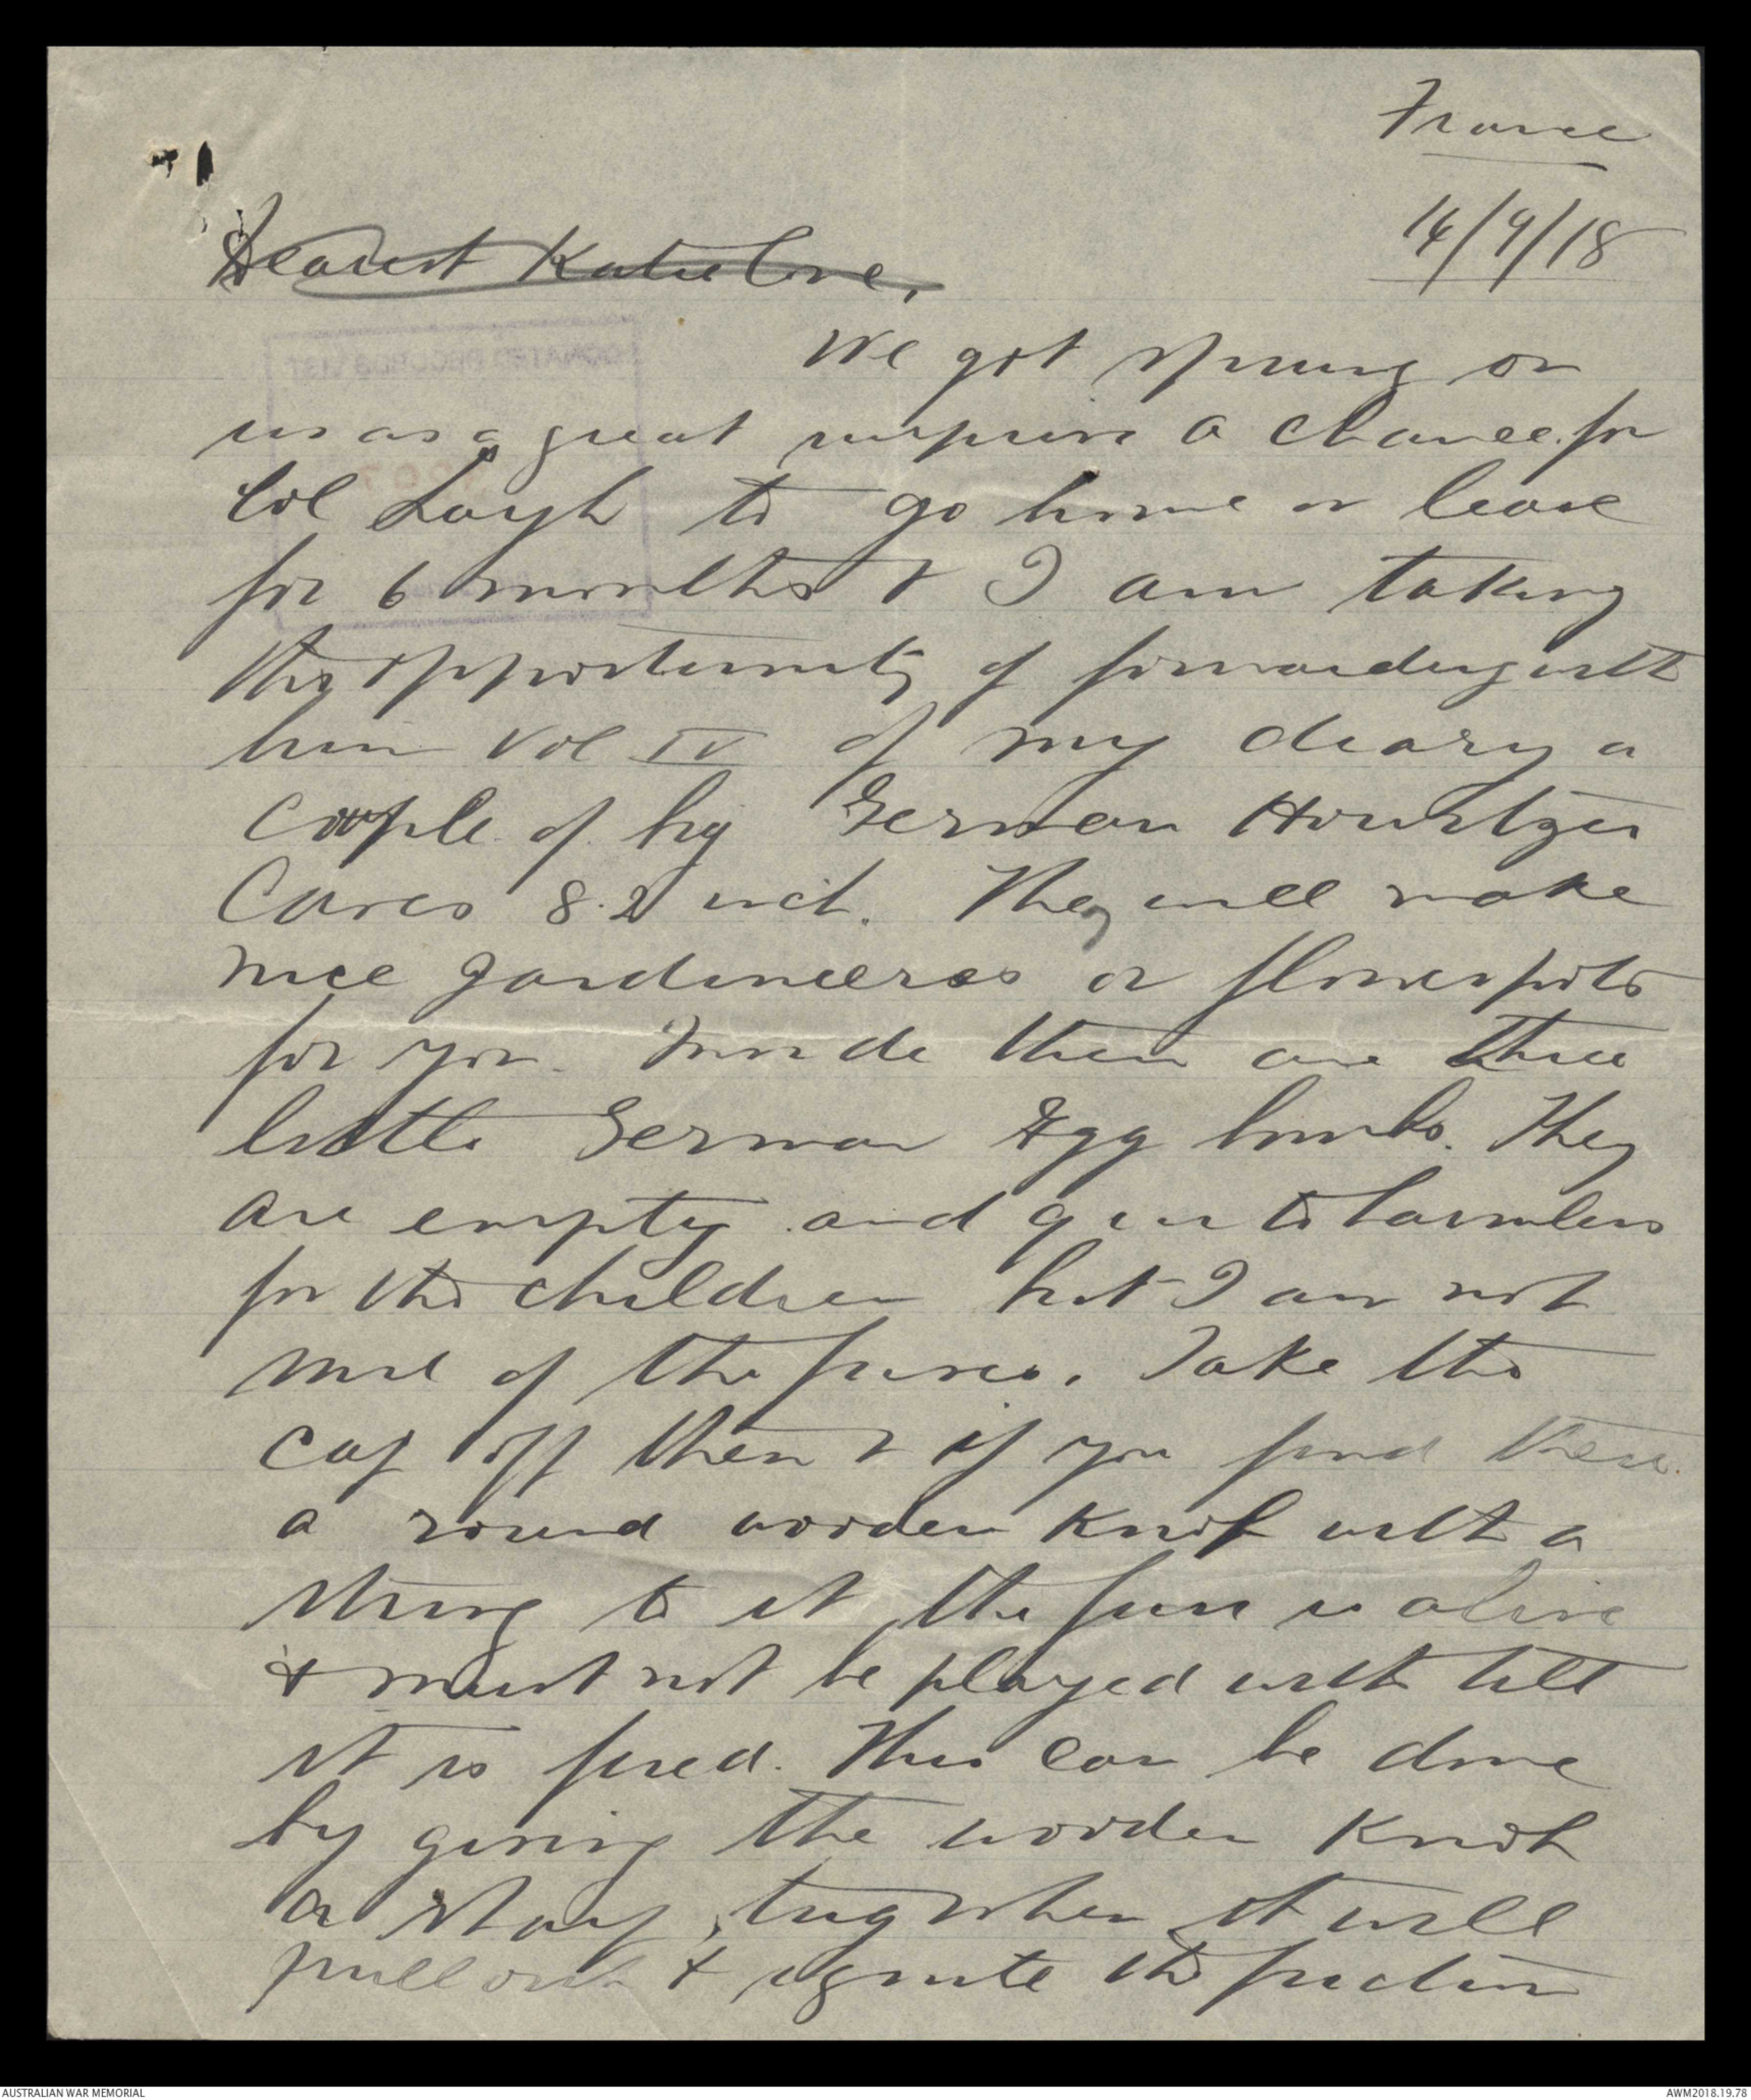 France
14/9/18
Dearest Katie love,
We got sprung on
us as a great surprise a chance for
Col Loyh to go home on leave
for 6 months & I am taking
this opportunity of forwarding with
him Vol IV of my diary a
couple of big German Howitzer
Cases 8.2 inch. They will make
nice jardineeres or flowerpots
for you. Inside them are three
little German Egg bombs. They
are empty and quite harmless
for the children but I am not
sure of the fuses. Take the
cap off them & if you find there
a round wooden knob with a
string to it the fuse is alive
& must not be played with till
it is fired. This can be done
by giving the wooden knob
a sharp tug when it will
pull out & ignite the friction
AUSTRALIAN WAR MEMORIAL
AWM2018.19.78